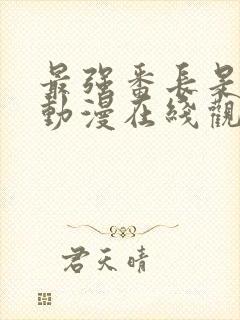 最強番長是
動漫在綫觀
君天晴